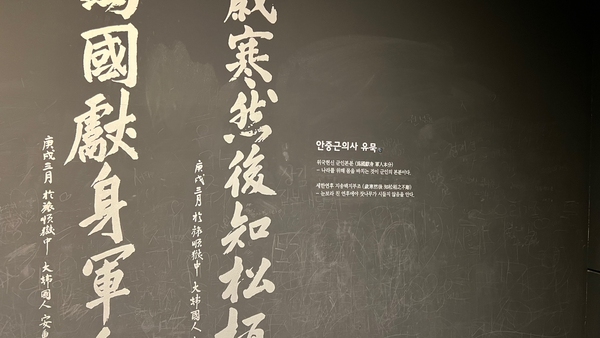 안중근의사 유묵
위국헌신 군인본분 (爲國獻身 軍人本分)
- 나라를 위해 몸을 바치는 것이 군인의 본분이다.
세한연후 지송백지부조 (歲寒然後 知松栢之不彫)
- 눈보라 친 연후에야 잣나무가 시들지 않음을 안다.
歲寒然後知松栢
庚戌三月 於旅順獄中 大韓國人
爲國獻身軍人
庚戌三月 於旅順獄中 大韓國人 安重